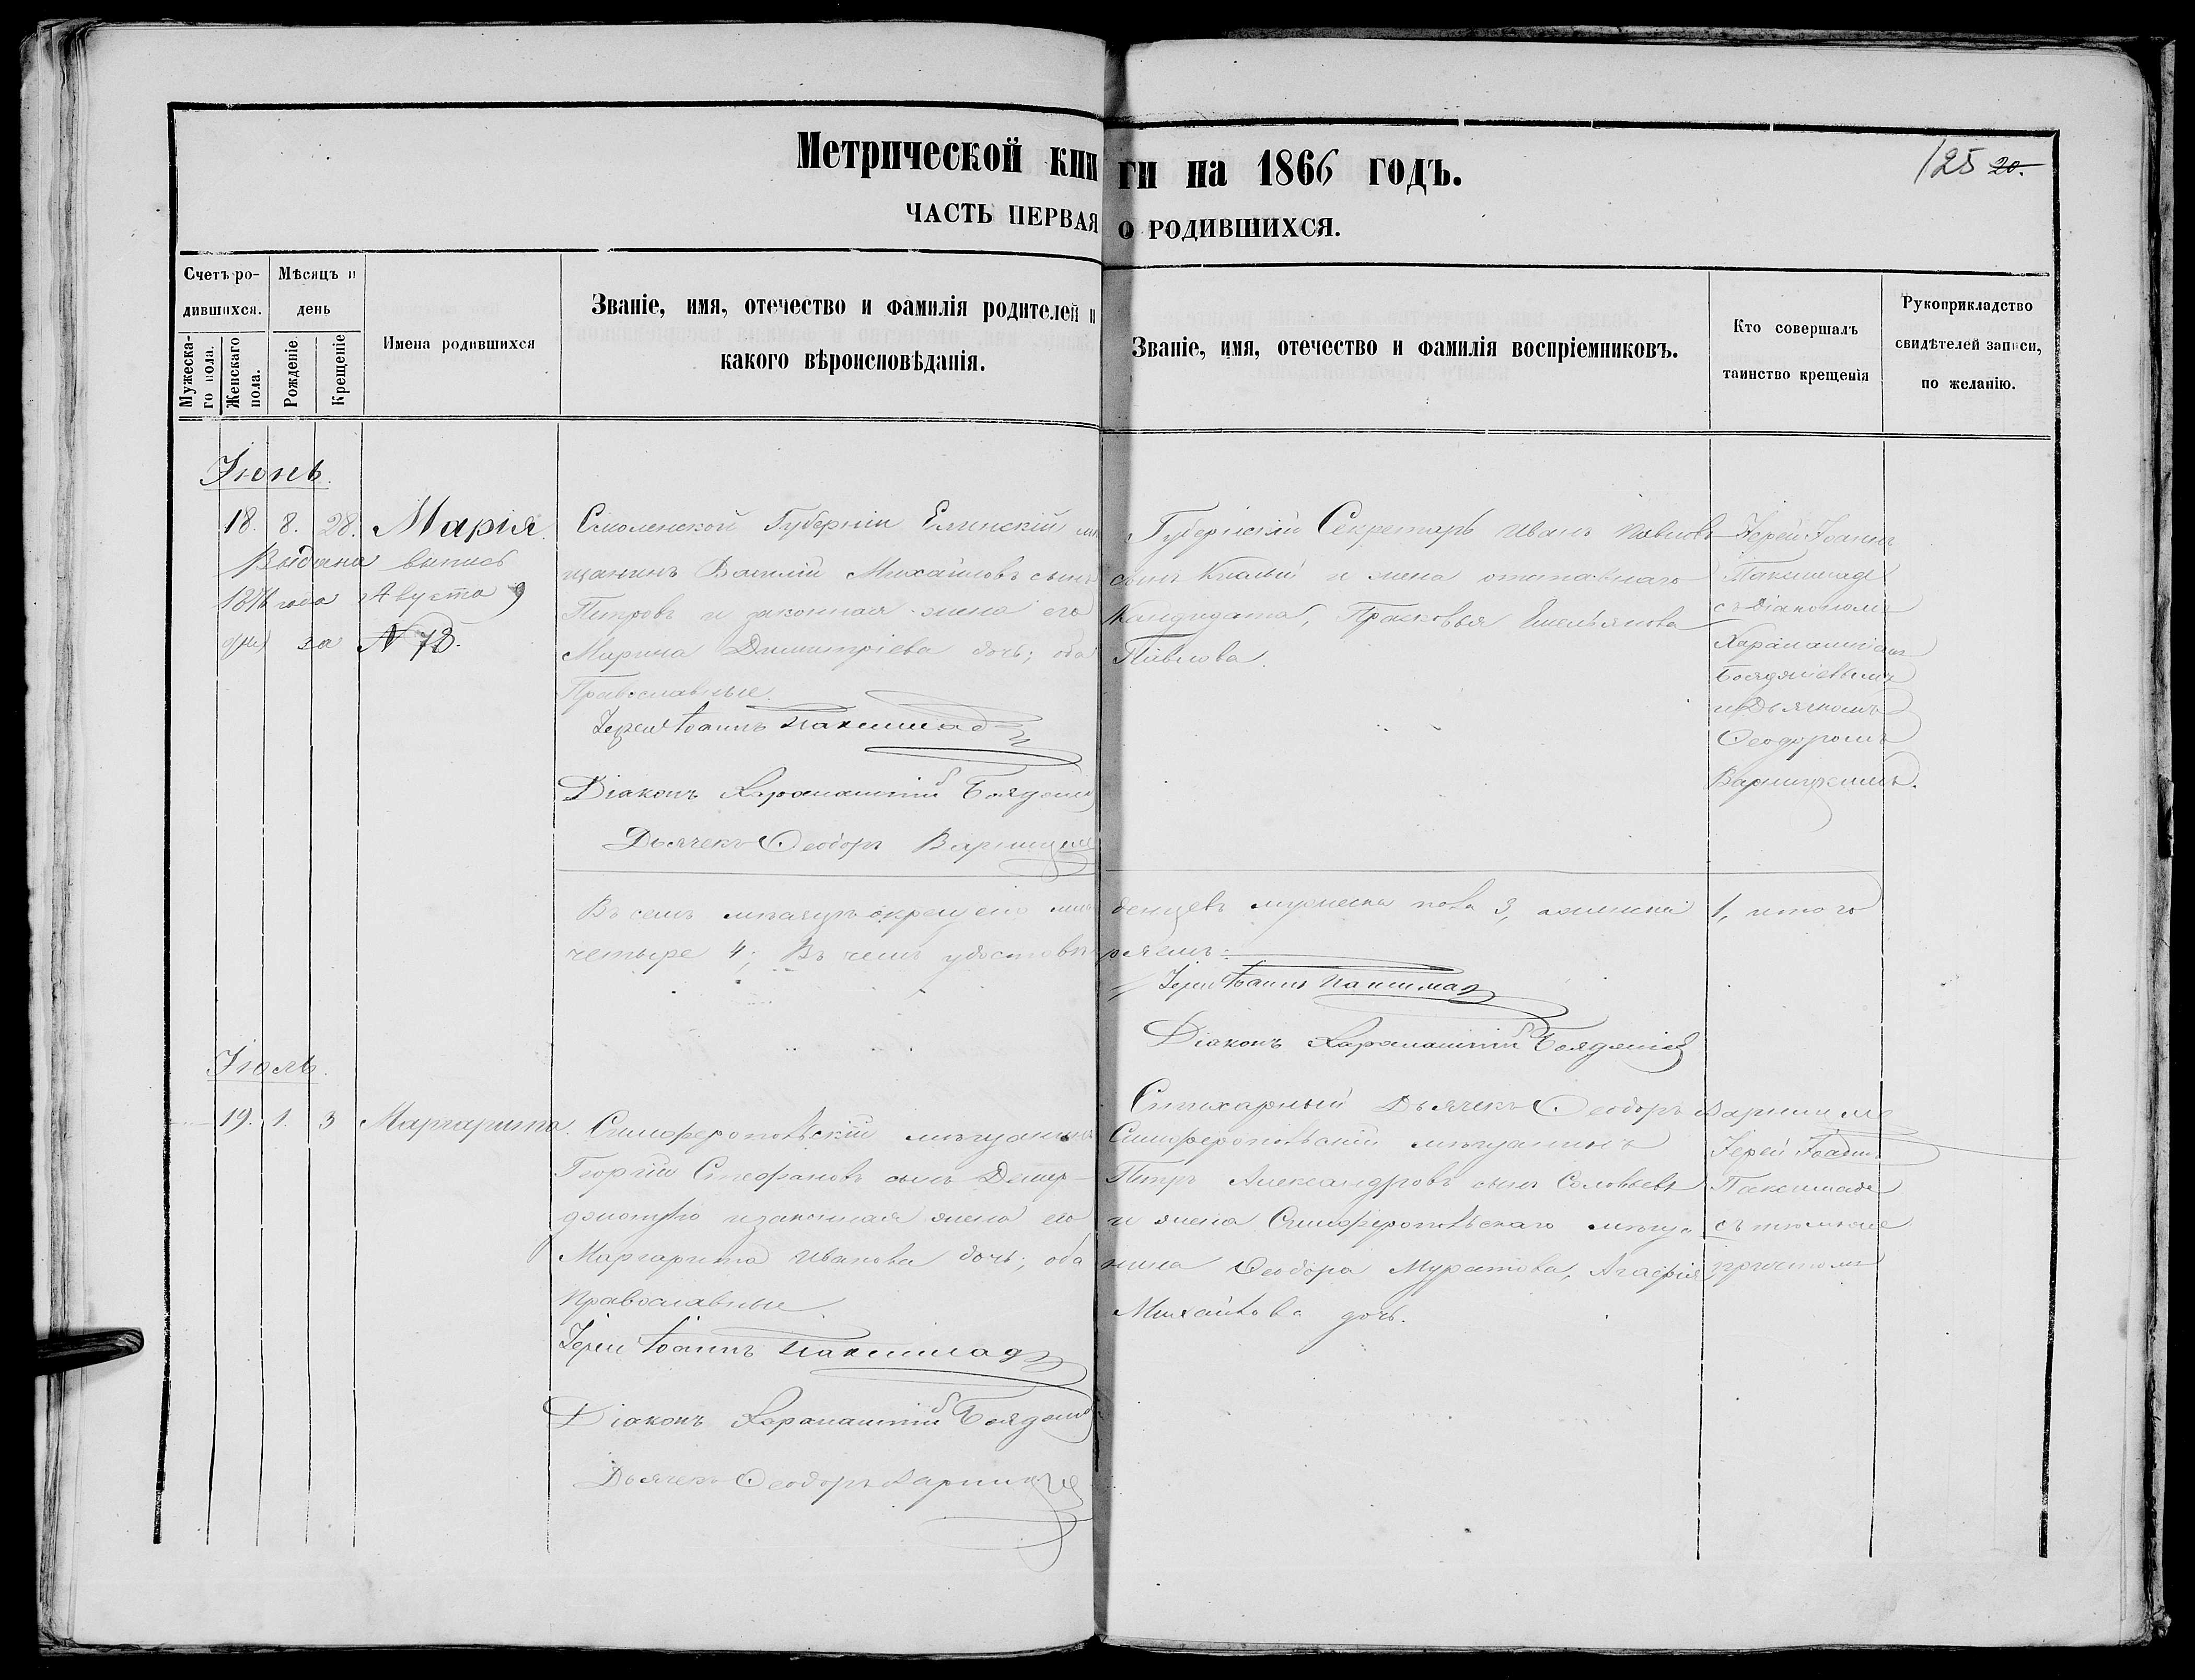 Метрической книги на 1866 годъ.
125 20.
ЧАСТЬ ПЕРВАЯ О РОДИВШИХСЯ.
Счетъ родившихся.
Мужескаго пола.
Женскаго пола.
Мѣсяцъ и день
Рожденіе
Крещеніе
Имена родившихся
Званіе, имя, отечество и фамилія родителей и
какого вѣроисповѣданія.
Званіе, имя, отечество и фамилія воспріемниковъ.
Кто совершалъ
таинство крещенія
Рукоприкладство
свидѣтелей записи,
по желанію.
Іюнь.
18. 8. 28. Марія.
Выдана выпись
года Августа 9
дня за № 78.
Смоленской Губерніи Елинскій мѣ
щанинъ Василій Михайловъ сынъ
Петровъ и законная жена его
Марина Димитріева дочь; оба
Православные.
Іерей Іоаннъ Паксимад
Діаконъ Харалампій
Дьячекъ Ѳеодоръ
Губернскій Секретарь Иванъ Павловъ
сынъ и жена отставнаго
Кандидата, Прасковья Емельянова
Павлова.
Іерей Іоаннъ
Паксимаде
съ діакономъ
Харалампіемъ
и Дьячкомъ
Ѳеодоромъ
Въ семъ мѣсяцѣ окрещено мла
денцевъ мужеска пола 3, женска 1, итого
четыре 4; Въ чемъ удостовѣ
ряемъ:
Іерей Іоаннъ Паксимад
Діаконъ Харалампій
Стихарный Дьячекъ Ѳеодоръ
Іюль.
19. 1. 3 Маргарита.
Симферопольскій мѣщанинъ
Георгій Стефановъ сынъ
и законная жена его
Маргарита Иванова дочь; оба
православные
Іерей Іоаннъ Паксимад
Діаконъ Харалампій
Дьячекъ Ѳеодоръ
Симферопольскій мѣщанинъ
Петръ Александровъ сынъ Соловьевъ
и жена Симферопольскаго мѣща
нина Ѳеодора Муратова, Агафія
Михайлова дочь.
Іерей Іоаннъ
Паксимаде
съ тѣмъ же
причтомъ